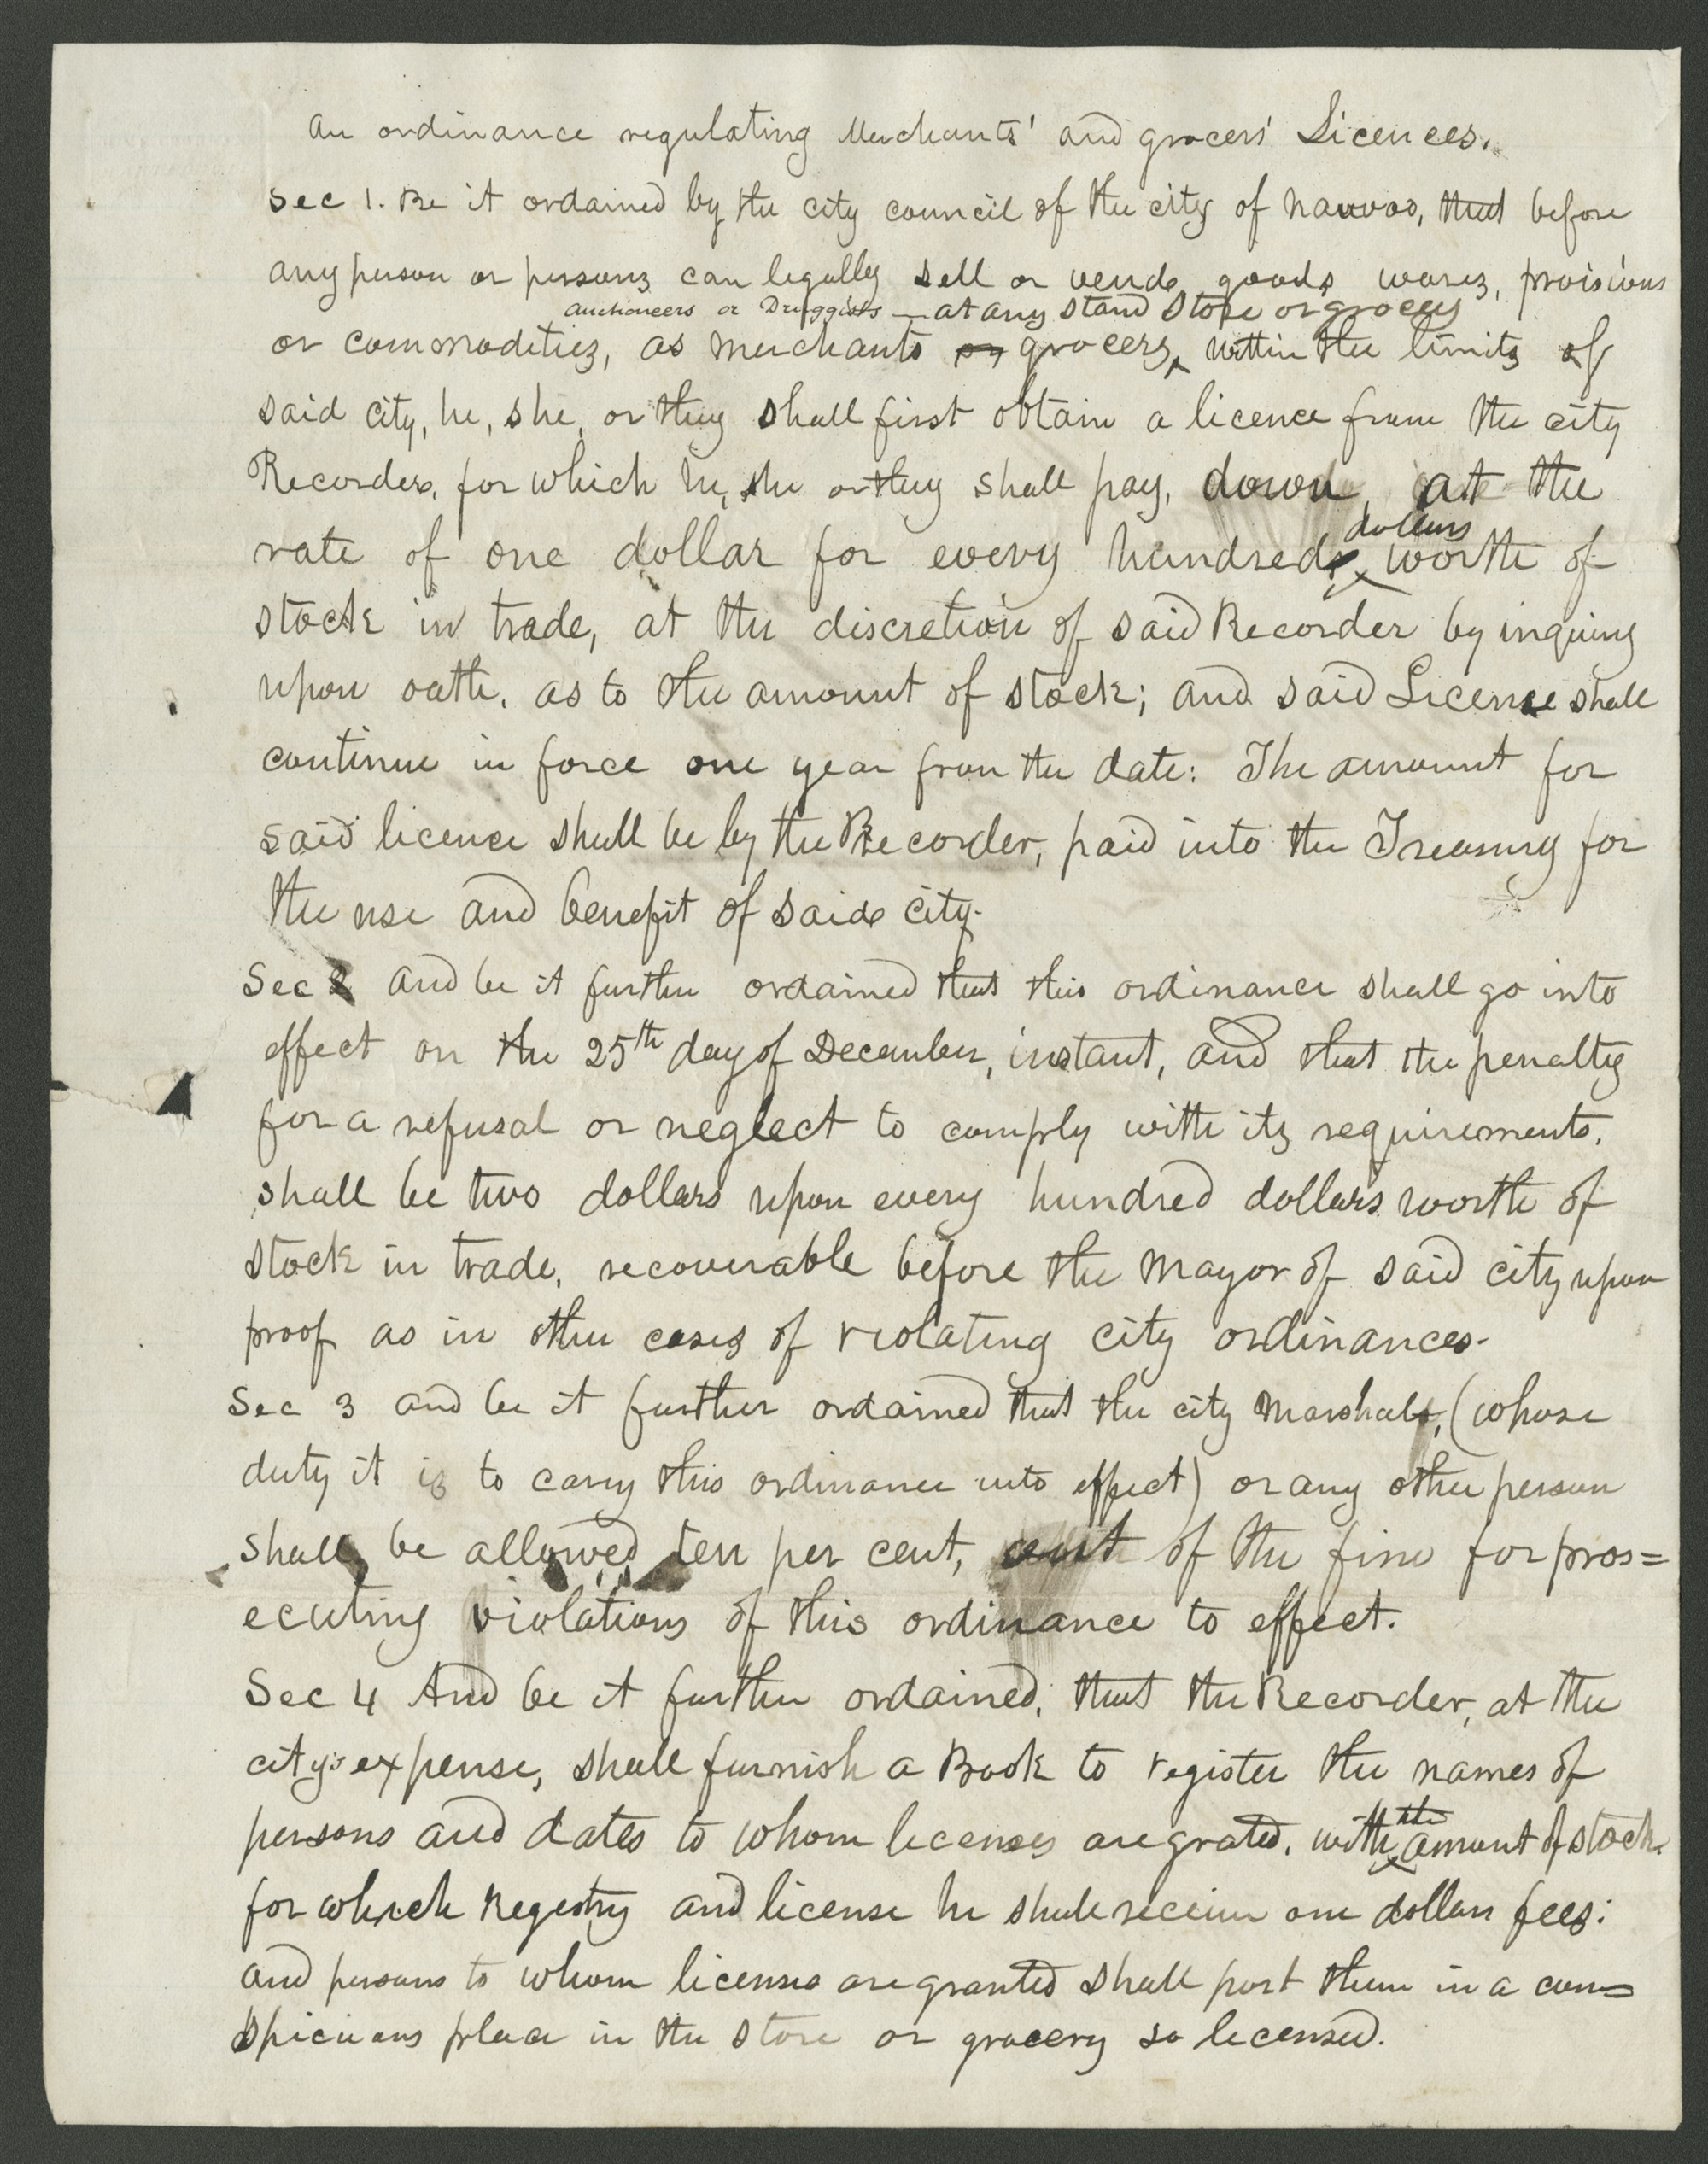 An ordinance regulating Merchants' and grocers' Licences.
Sec 1. Be it ordained by the city council of the city of Nauvoo, that before
any person or persons can legally sell or vend goods wares, provisions
auctioneers or Druggists — at any stand store or grocery
or commodities, as merchants or grocers, within the limits of
said city, he, she, or they shall first obtain a licence from the city
Recorder, for which he, she or they shall pay, down, at the
dollars
rate of one dollar for every hundred worth of
stock in trade, at the discretion of said Recorder by inquiry
upon oath, as to the amount of stock; and said License shall
continue in force one year from the date: The amount for
said licence shall be by the Recorder, paid into the Treasury for
the use and benefit of said city.
Sec 2 and be it further ordained that this ordinance shall go into
effect on the 25th day of December, instant, and that the penalty
for a refusal or neglect to comply with its requirements,
shall be two dollars upon every hundred dollars worth of
stock in trade, recoverable before the Mayor of said city upon
proof as in other cases of violating city ordinances.
Sec 3 and be it further ordained that the city Marshal, (whose
duty it is to carry this ordinance into effect) or any other person
shall be allowed ten per cent, of the fine for pros=
ecuting violations of this ordinance to effect.
Sec 4 And be it further ordained, that the Recorder, at the
city's expense, shall furnish a Book to register the names of
the
persons and dates to whom licenses are grated, with amount of stock
for which Registry and license he shall receive one dollar fees:
and persons to whom licenses are granted shall post them in a con=
spicuous place in the store or grocery so licensed.